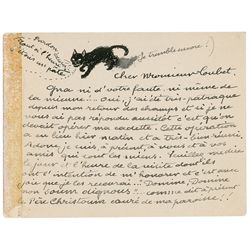 Pardon
tout à l'heure
(Je tremble encore!)
Cher Monsieur Loubet,
Qua ni d'votre faute, ni meme de
la mienne... oui, j'ai été très patraque
depuis mon retour des champs et si je ne
vous ai pas répondu aussitôt c'est qu'on
devait opérer ma cadette. Cette opération
a eu lieu hier matin et a très bien réussi
donc, je suis, à présent, à vous et à vos
amis qui sont les miens. Veuillez me dire
le jour et l'heure de la visite dont ils
ont l'intention de m'honorer et c'est avec
joie que je les recevrai... "Domine, Domine
non sum dignous"... comme dit à présent
l'ère Christoum curé de ma paroisse!